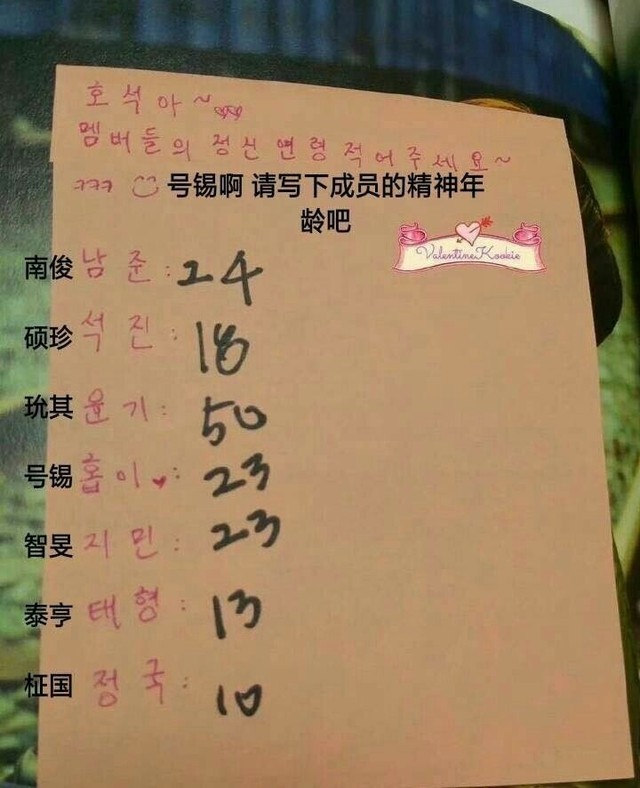 호석아~
멤버들의 정신연령 적어주세요~
ㅋㅋㅋ 号锡啊 请写下成员的精神年
龄吧
ValentineKookie
南俊 남준: 24
硕珍 석진: 18
玧其 윤기: 50
号锡 홉이♥: 23
智旻 지민: 23
泰亨 태형: 13
柾国 정국: 10